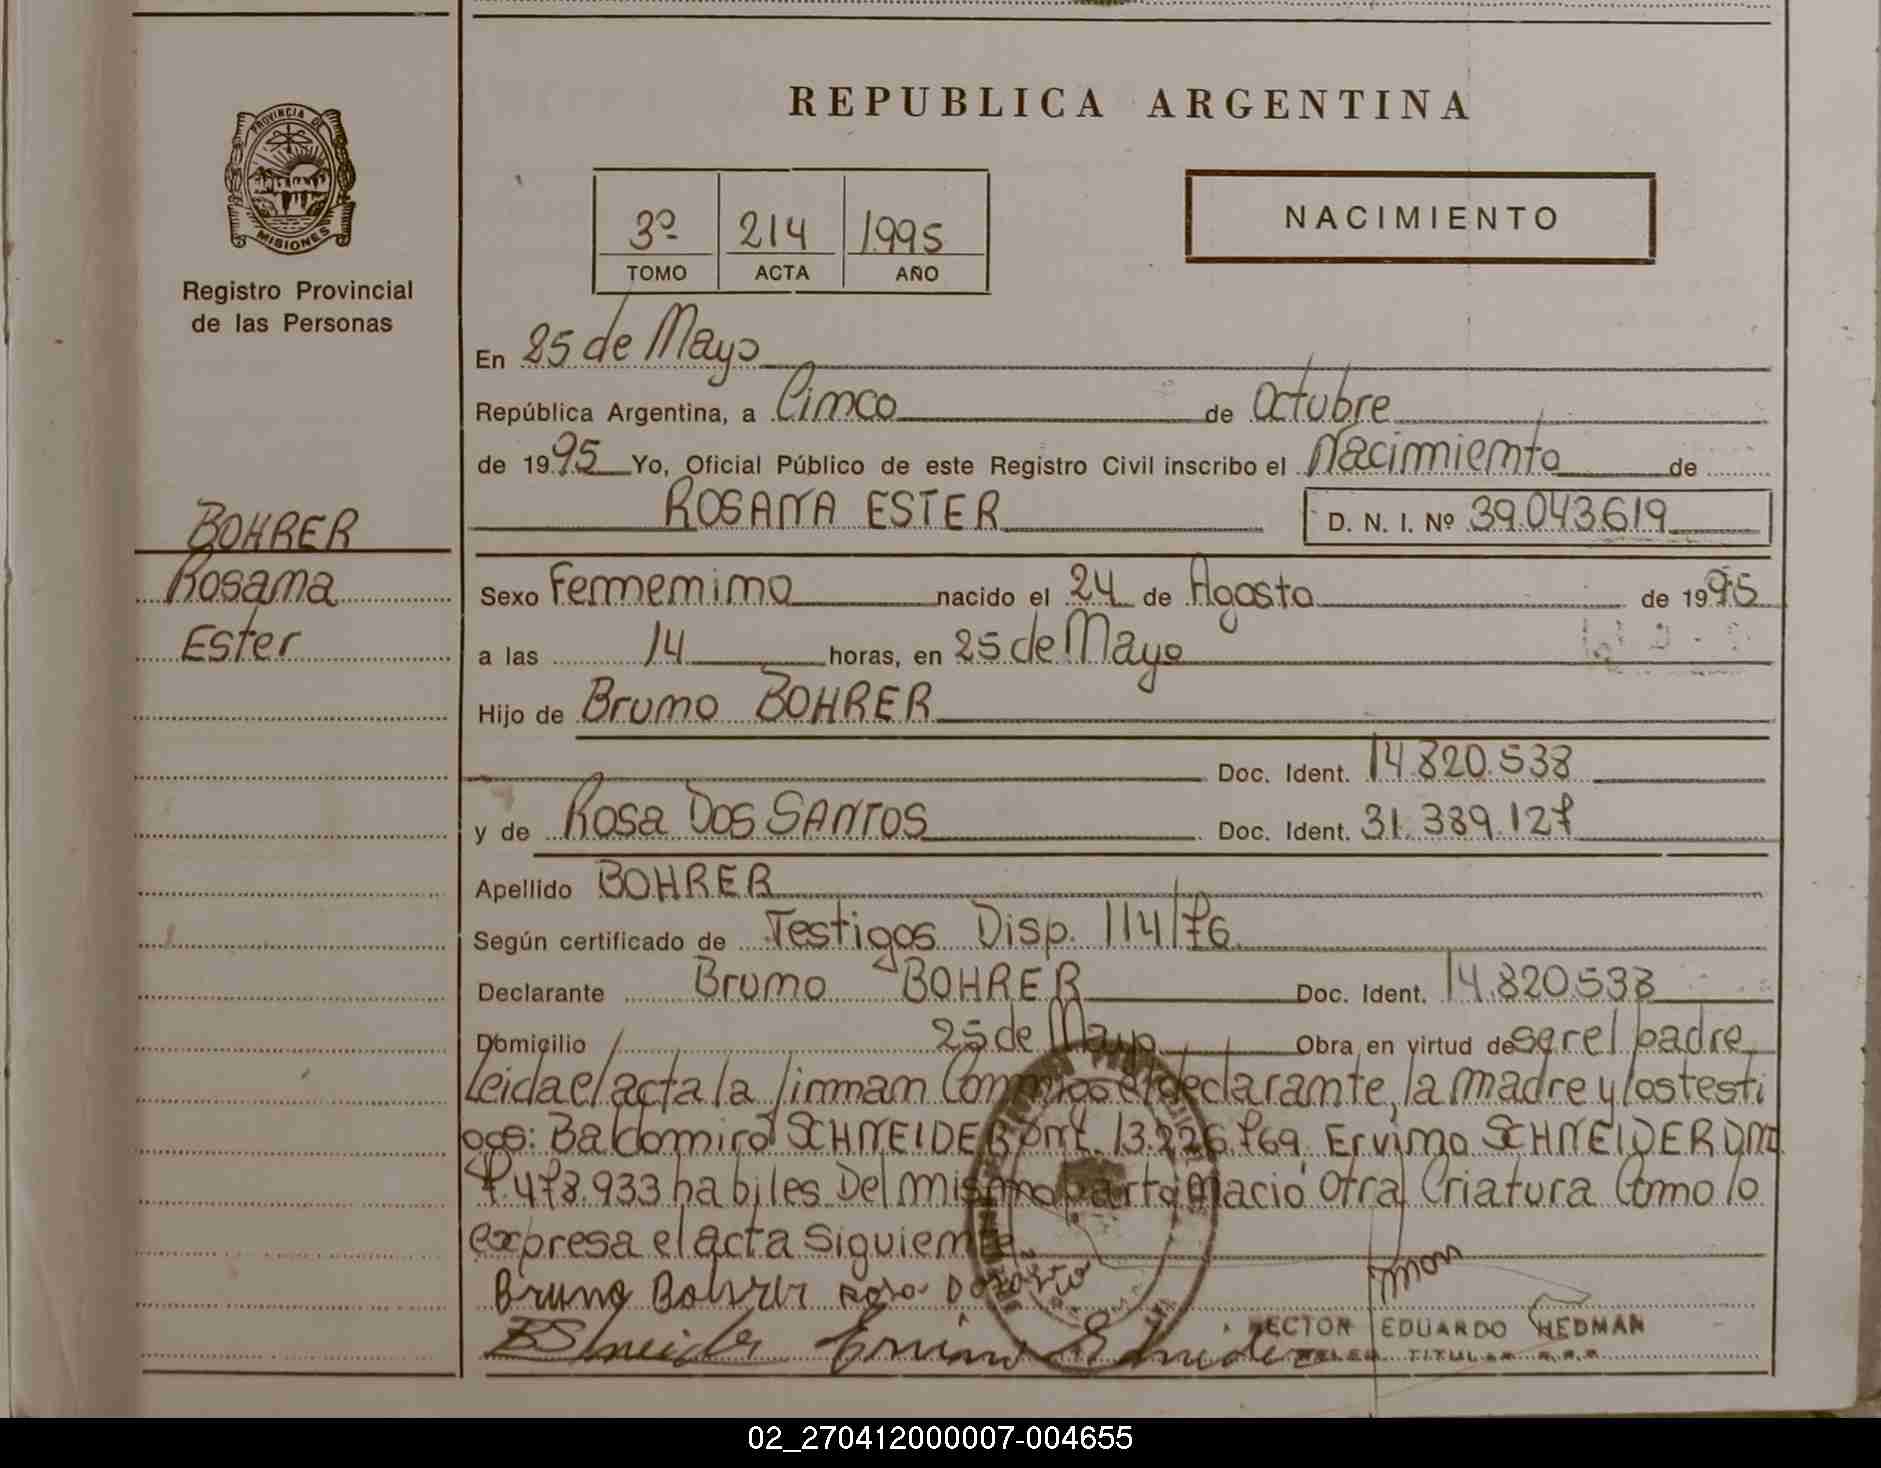 REPUBLICA ARGENTINA
PROVINCIA DE
MISIONES
Registro Provincial
de las Personas
3º 214 1995
TOMO ACTA AÑO
NACIMIENTO
En 25 de Mayo
República Argentina, a Cinco de Octubre
de 1995 Yo, Oficial Público de este Registro Civil inscribo el Nacimiento de
ROSANA ESTER D. N. I. Nº 39.043.619
BOHRER
Rosana
Ester
Sexo Femenino nacido el 24 de Agosto de 1995
a las 14 horas, en 25 de Mayo
Hijo de Bruno BOHRER
Doc. Ident. 14.820.538
y de Rosa DOS SANTOS Doc. Ident. 31.339.127
Apellido BOHRER
Según certificado de Testigos Disp. 114/76
Declarante Bruno BOHRER Doc. Ident. 14.820.538
Domicilio 25 de Mayo Obra en virtud de ser el padre
Leida el acta la firman Conmigo el declarante, la madre y los testi
gos: Baldomiro SCHNEIDER DNI. 13.226.769. Ervino SCHNEIDER DNI
7.478.933 habiles Del mismo parto nacio otra Criatura Como lo
expresa el acta siguiente
Bruno Bohrer Rosa
HECTOR EDUARDO HEDMAN
TITULAR
02_270412000007-004655